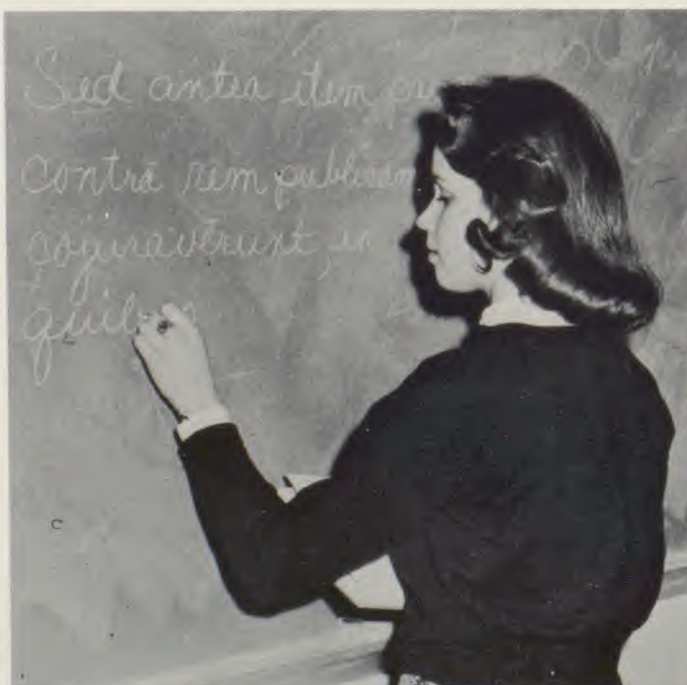 Sed antea item
contrā rem publicam
conjurāvērunt, in